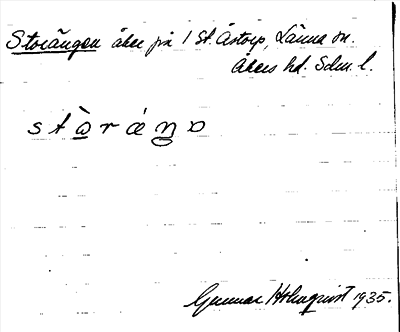 Storängen åker på 1 St. Åstorp, Länna sn.
Åkers hd. Sdm. l.
stò̱ráŋo
Gunnar Holmquist 1935.